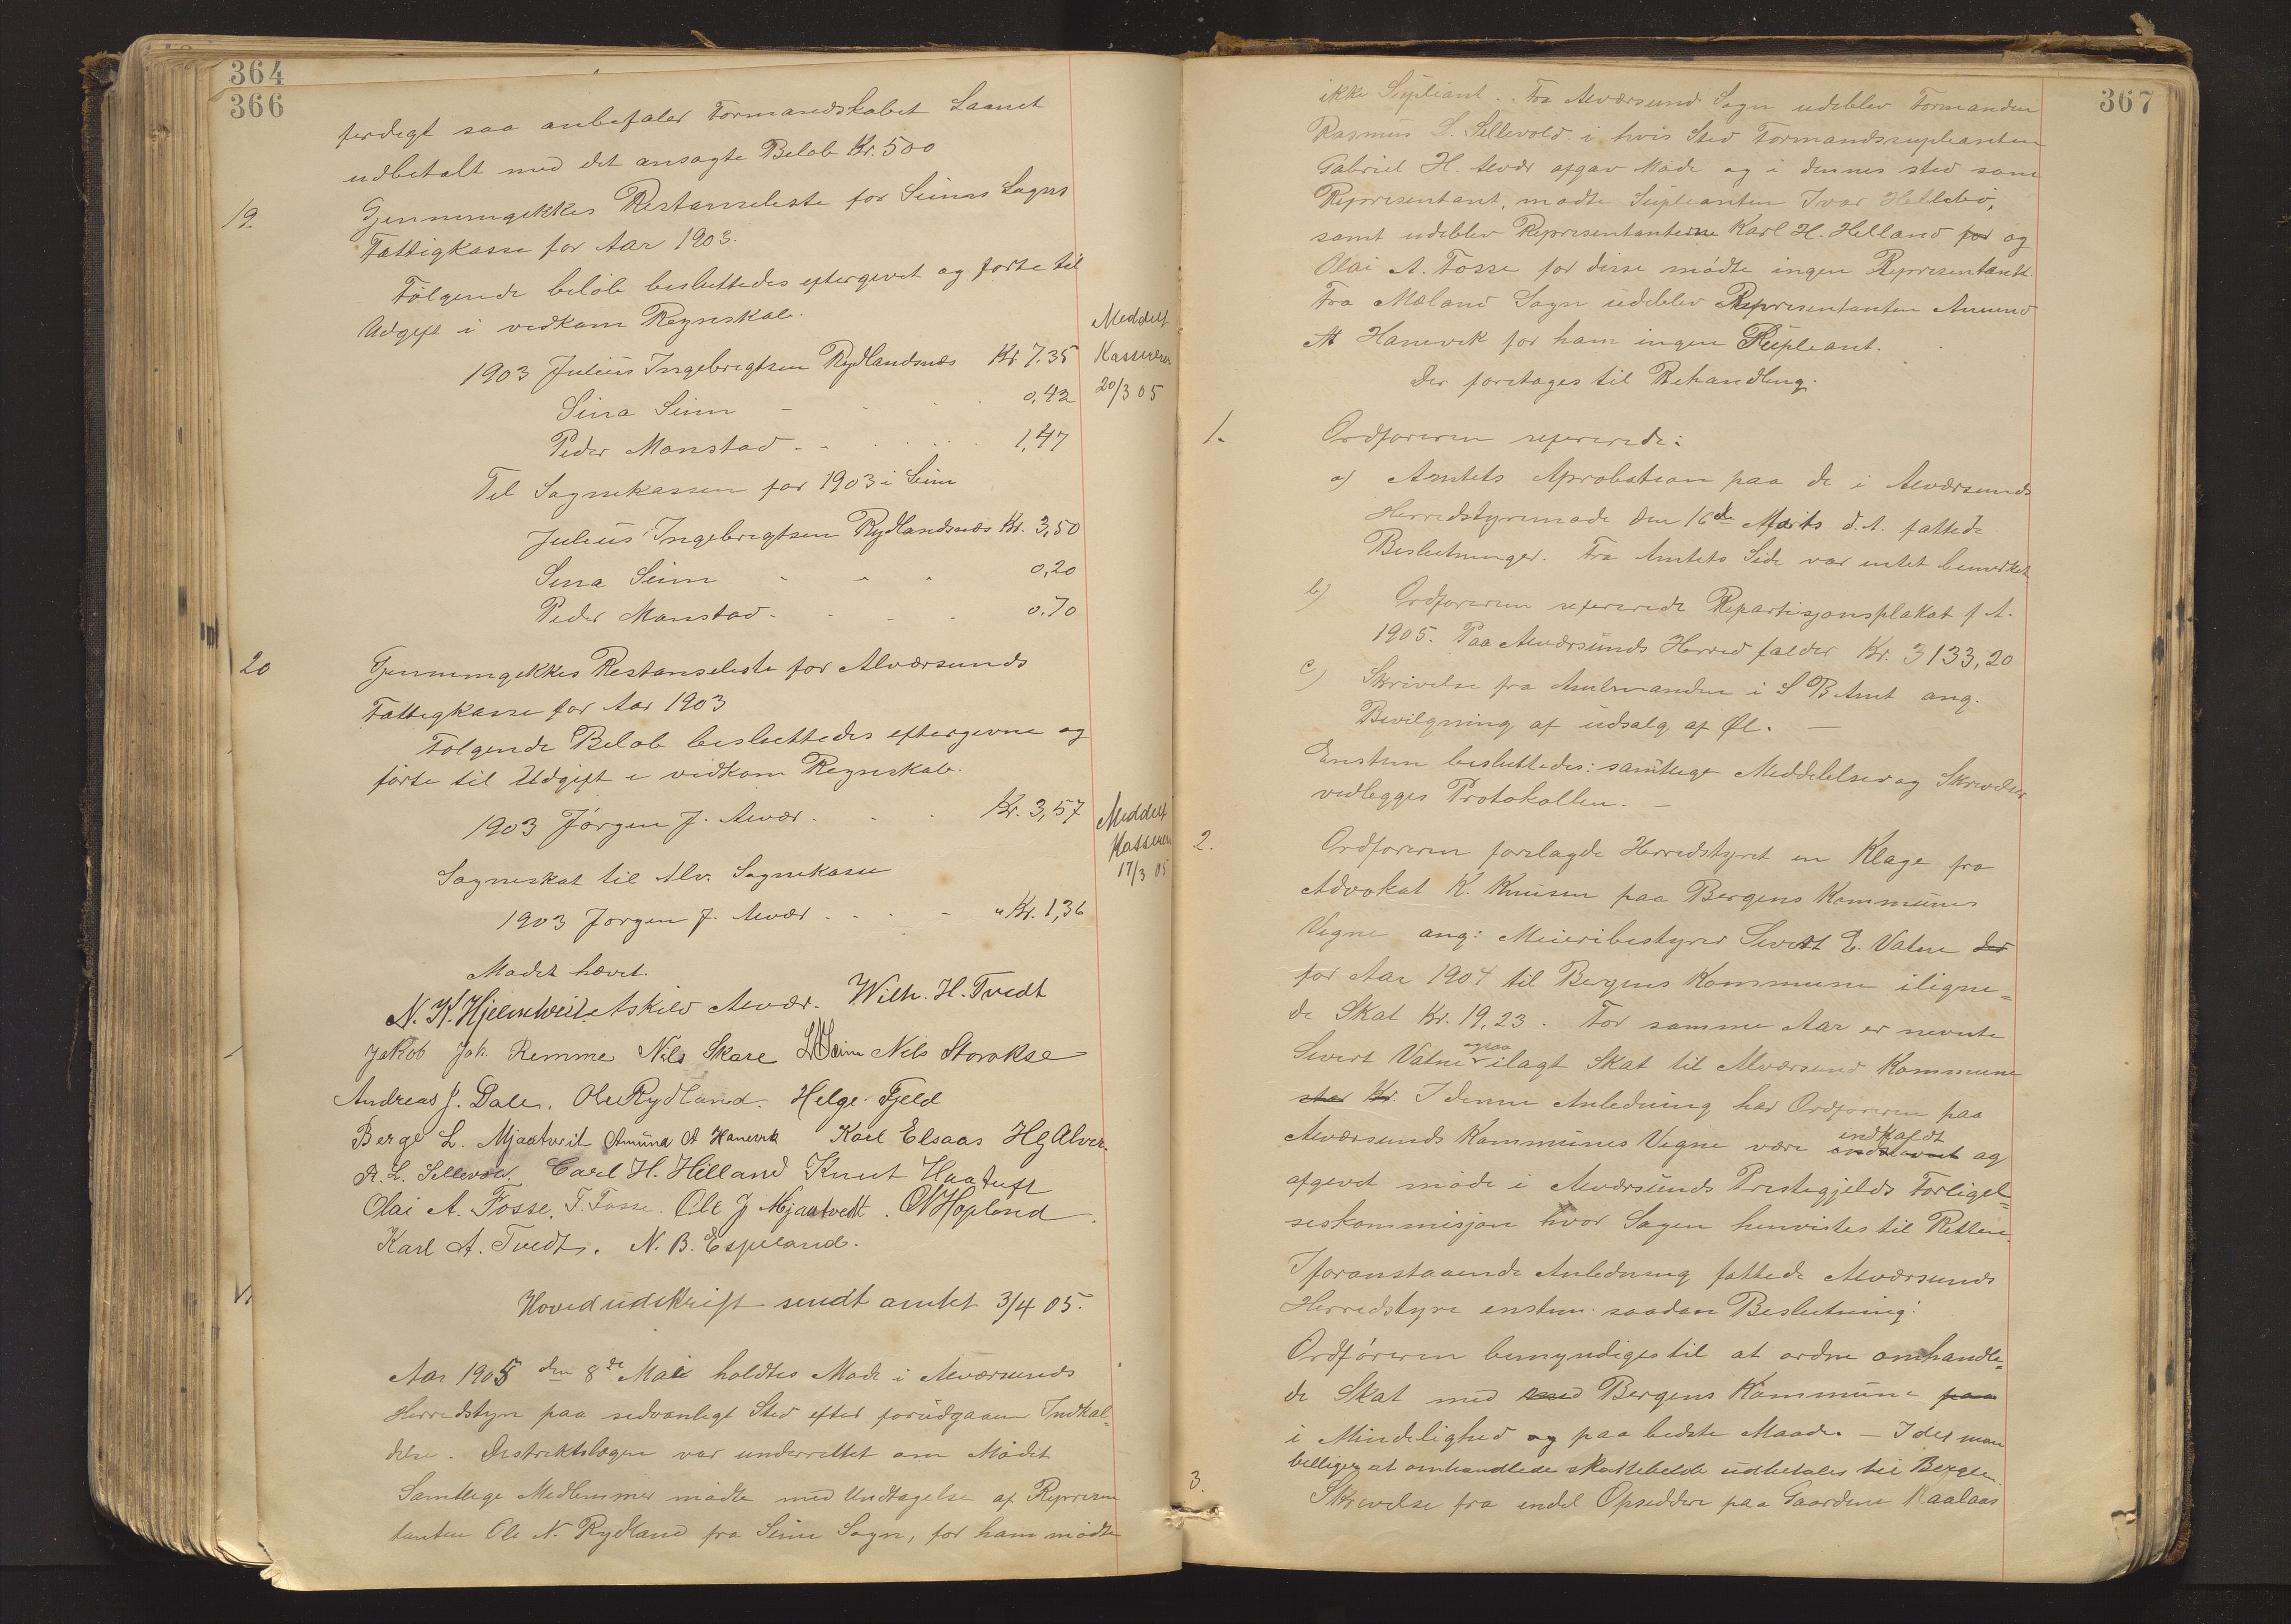 364
366
ferdigt saa anbefaler Formandskabet Laanet
udbetalt med det ansøgte Beløb Kr. 500
19. Gjennemgikkes Restanseliste for Seims Sogns
Fattigkasse for Aar 1903.
Følgende beløb besluttedes eftergivet og førte til
Udgift i vedkom Regnskab.
1903 Julius Ingebrigtsen Rydlandsnæs Kr. 7.35
Sina Seim - 0,42
Peder Monstad - - 1,47
Meddelt
Kassereren
20/3 05
Til Sognekassen for 1903 i Seim
Julius Ingebrigtsen Rydlandsnæs Kr. 3,50
Sina Seim - - - 0,20
Peder Monstad - - - 0.70
20 Gjennemgikkes Restanseliste for Alværsunds
Fattigkasse for Aar 1903
Følgende Beløb besluttedes eftergivne og
førte til Udgift i vedkom Regnskab.
1903 Jørgen J. Alvær. Kr. 3,57
Meddelt
Kasseren
17/3 05
Sogneskat til Alv. Sognekasse
1903 Jørgen J. Alvær - - - " Kr. 1,36
Mødet hævet.
N. K. Hjelmtveit. Askild Alvær. Wilh. H. Tvedt
Jakob Joh. Remme Nils Skare Seim Nils Storokse
Andreas J. Dale. Ole Rydland. Helge Fjeld
Berge L. Mjaatveit Amund A Hanevik Karl Elsaas H G Alver.
R. L. Sellevold. Carl H. Helland Knut Haatuft
Olai A. Fosse. T. Fosse. Ole J Mjaatvedt. N Hopland.
Karl A. Tvedt. N. B. Espeland.
Hovedudskrift sendt amtet 3/4 05.
Aar 1905 den 8de Mai holdtes Møde i Alværsunds
Herredstyre paa sedvanligt Sted efter forudgaaen Indkal=
delse. Distriktslægen var underrettet om Mødet
Samtlige Medlemmer mødte med Undtagelse af Represen
tanten Ole N. Rydland fra Seim Sogn, for ham mødte
367
ikke Supliant. Fra Alværsund Sogn udeblev Formanden
Rasmus L. Sellevold i hvis Sted Formandssupleanten
Gabriel H. Alvær afgav Møde og i dennes sted som
Representant, mødte Supleanten Ivar Hellebø,
samt udeblev Representanterne Karl H. Helland for og
Olai A. Fosse for disse mødte ingen Representant.
Fra Meland Sogn udeblev Representanten Amund
A Hanevik for ham ingen Supleant.
Der foretages til Behandling.
1. Ordføreren refererede:
a) Amtets Aprobation paa de i Alværsunds
Herredstyremøde den 16de Marts d. A. fattede
Beslutninger. Fra Amtets Side var intet bemerket
b) Ordføreren refererede Repartisjonsplakat f A.
1905. Paa Alværsunds Herred falder Kr. 3133,20
c) Skrivelse fra Amtmanden i S B Amt ang.
Bevilgning af udsalg af Øl. -
Enstem besluttedes: samtlige Meddelelser og Skrivelser
vedlegges Protokollen. -
2. Ordføreren forelagde Herredstyret en Klage fra
Advokat K. Knusen paa Bergens Kommunes
Vegne ang: Meieribestyrer Sivert E. Vatne der
for Aar 1904 til Bergens Kommune iligne=
de Skat Kr. 19,23. For samme Aar er nevnte
Sivert Vatne ogsaa ilagt Skat til Alværsund Kommune
Kr. I denne Anledning har Ordføreren paa
Alværsunds Kommunes Vegne være indkaldt og
afgevet møde i Alværsunds Prestegjelds Forligel=
seskommisjon hvor Sagen henvistes til Retten.
I foranstaaende Anledning fattede Alværsunds
Herredstyre enstem. saadan Beslutning:
Ordføreren bemyndiges til at ordne omhandle=
de Skat med med Bergens Kommune paa
i Mindelighed og paa bedste Maade. - Idet man
billiger at omhandlede skattebeløb udbetales til Bergen
3. Skrivelse fra endel Opsiddere paa Gaardene Kaalaas